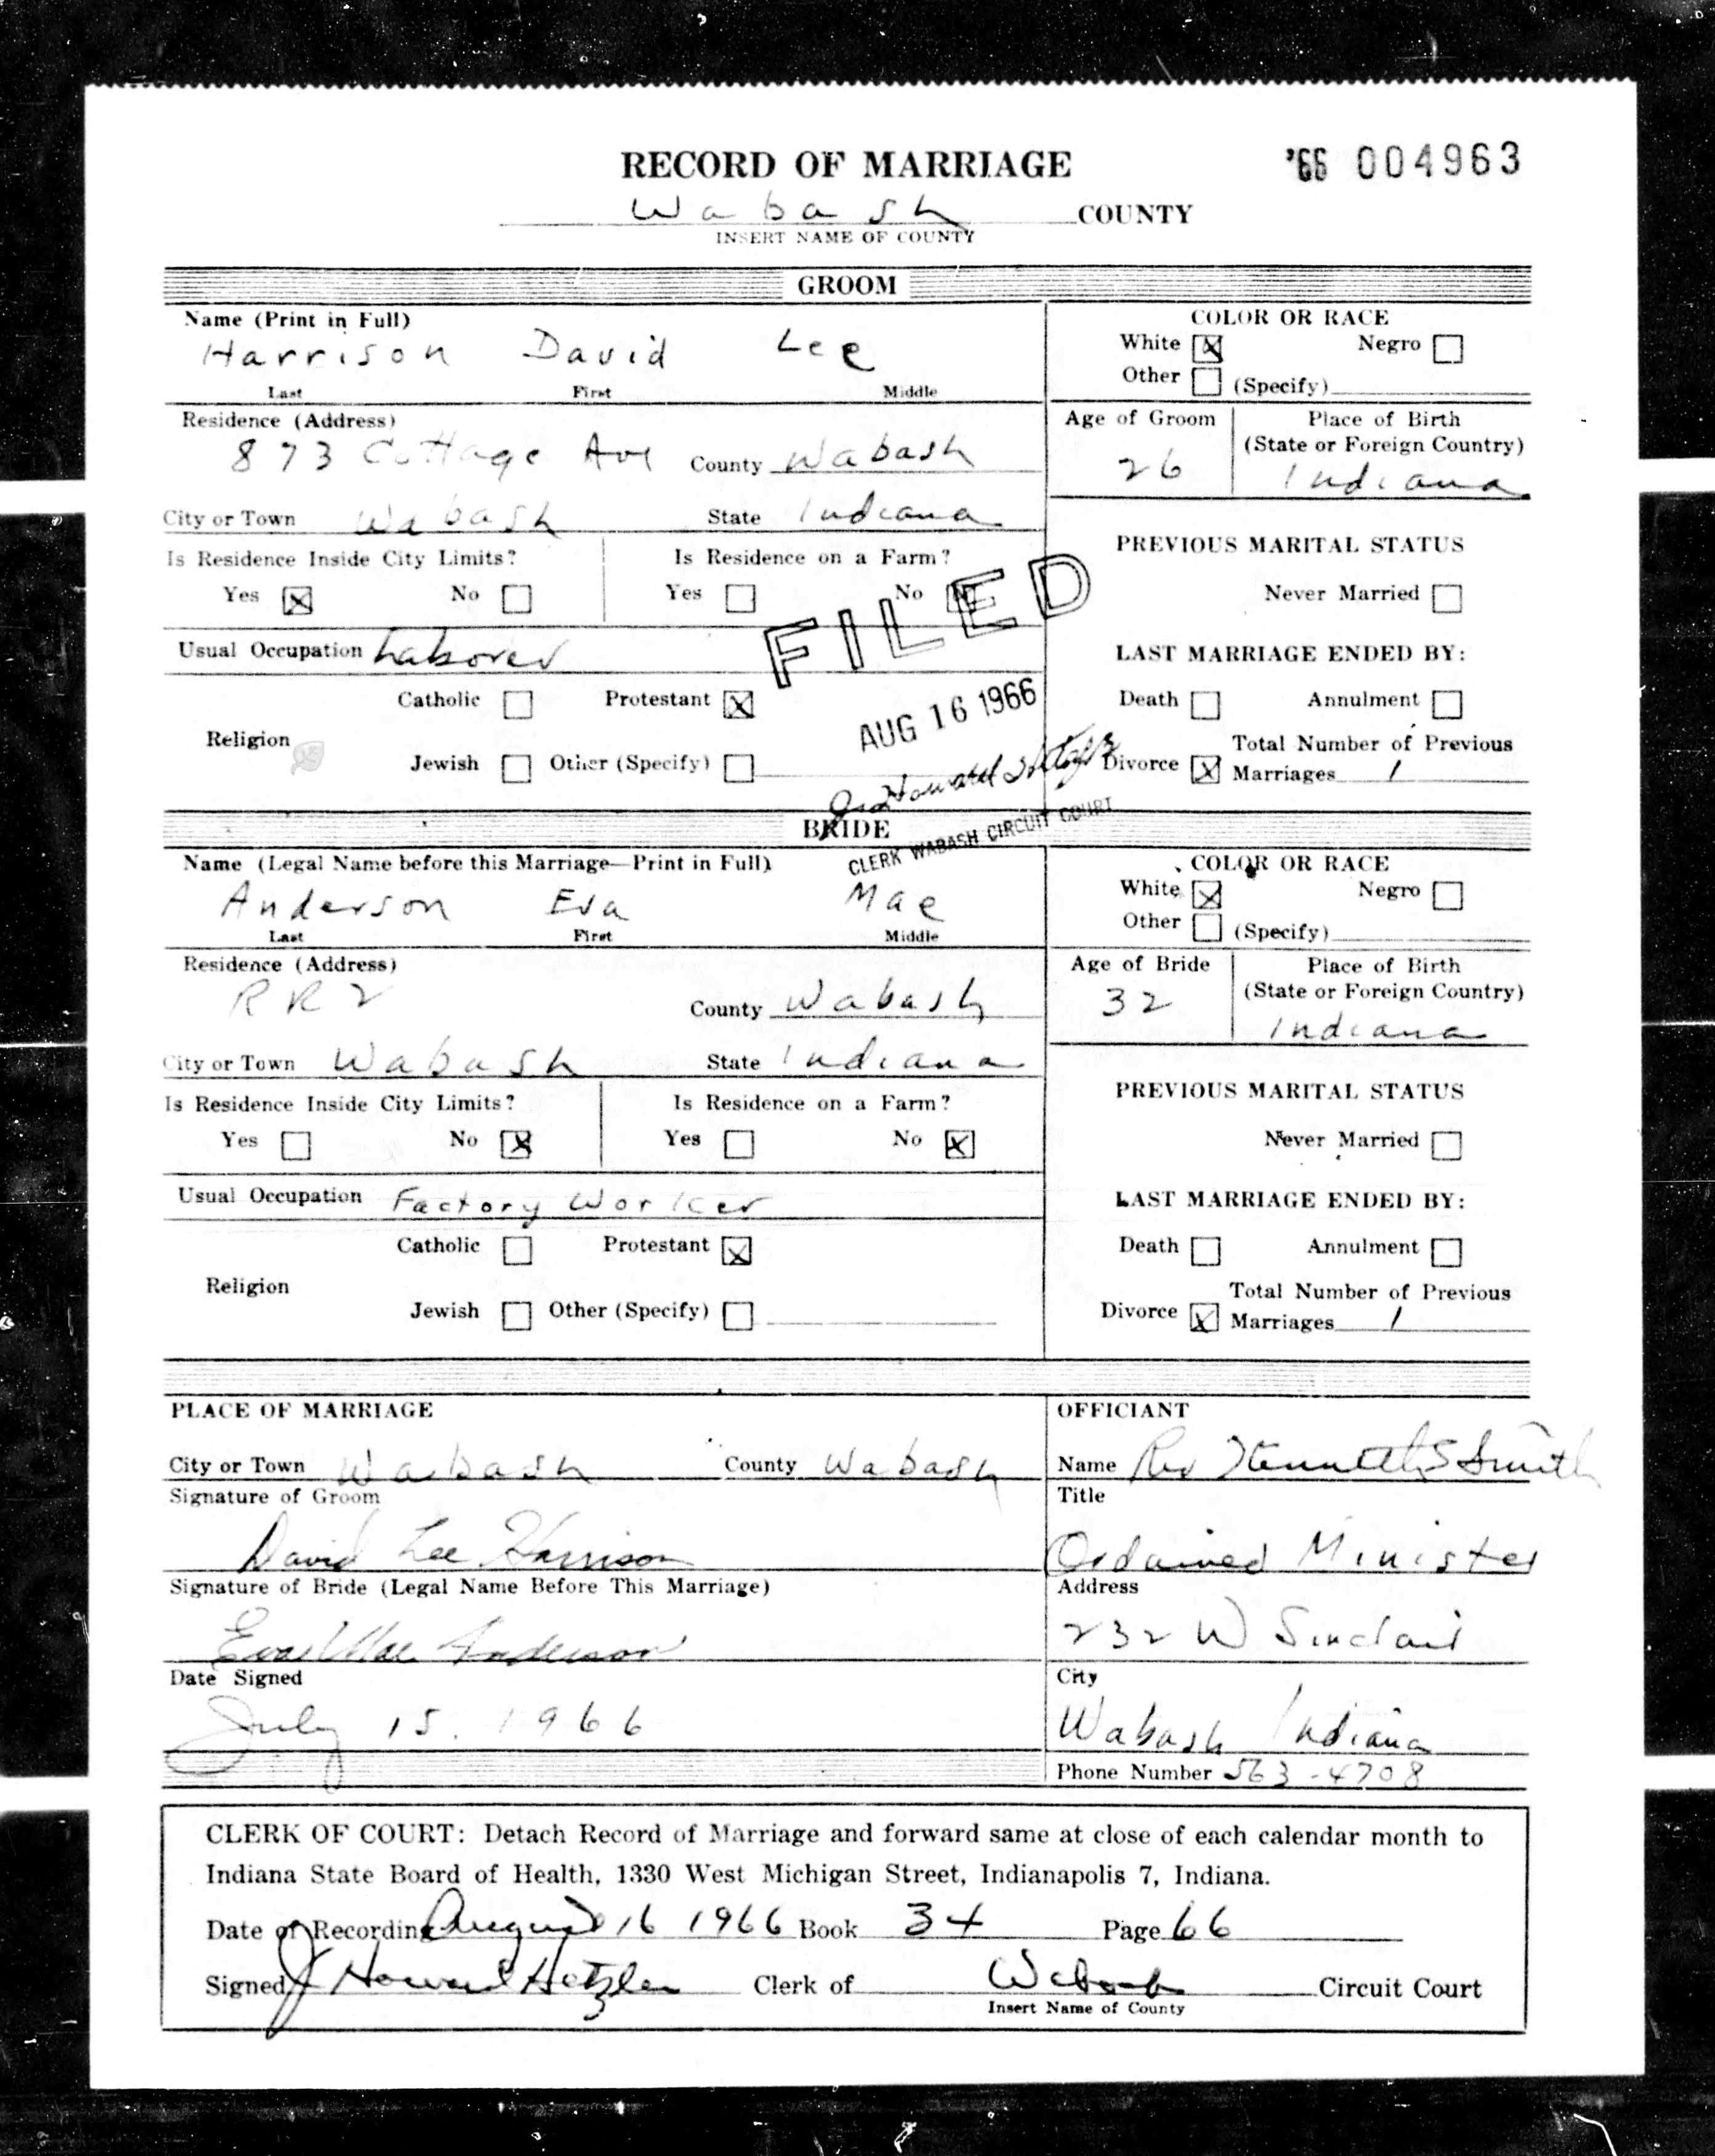 RECORD OF MARRIAGE '66 004963
Wabash COUNTY
INSERT NAME OF COUNTY
GROOM
Name (Print in Full) COLOR OR RACE
Harrison David Lee White Negro
Last First Middle Other (Specify)
Residence (Address) Age of Groom Place of Birth
(State or Foreign Country)
873 Cottage Ave County Wabash 26 Indiana
City or Town Wabash State Indiana
Is Residence Inside City Limits? Is Residence on a Farm? PREVIOUS MARITAL STATUS
Yes No Yes No Never Married
FILED
Usual Occupation Laborer LAST MARRIAGE ENDED BY:
Catholic Protestant Death Annulment
AUG 16 1966
Religion Total Number of Previous
Jewish Other (Specify) Divorce Marriages 1
CLERK WABASH CIRCUIT COURT
BRIDE
Name (Legal Name before this Marriage—Print in Full) COLOR OR RACE
Anderson Eva Mae White Negro
Last First Middle Other (Specify)
Residence (Address) Age of Bride Place of Birth
(State or Foreign Country)
RR2 County Wabash 32 Indiana
City or Town Wabash State Indiana
Is Residence Inside City Limits? Is Residence on a Farm? PREVIOUS MARITAL STATUS
Yes No Yes No Never Married
Usual Occupation Factory Worker LAST MARRIAGE ENDED BY:
Catholic Protestant Death Annulment
Religion Total Number of Previous
Jewish Other (Specify) Divorce Marriages 1
PLACE OF MARRIAGE OFFICIANT
City or Town Wabash County Wabash Name Rev Kenneth S Smith
Signature of Groom Title
David Lee Harrison Ordained Minister
Signature of Bride (Legal Name Before This Marriage) Address
Eva Mae Anderson 232 W Sinclair
Date Signed City
July 15. 1966 Wabash Indiana
Phone Number 563-4708
CLERK OF COURT: Detach Record of Marriage and forward same at close of each calendar month to
Indiana State Board of Health, 1330 West Michigan Street, Indianapolis 7, Indiana.
Date of Recording August 16 1966 Book 34 Page 66
Signed J Howard Hetzler Clerk of Wabash Circuit Court
Insert Name of County